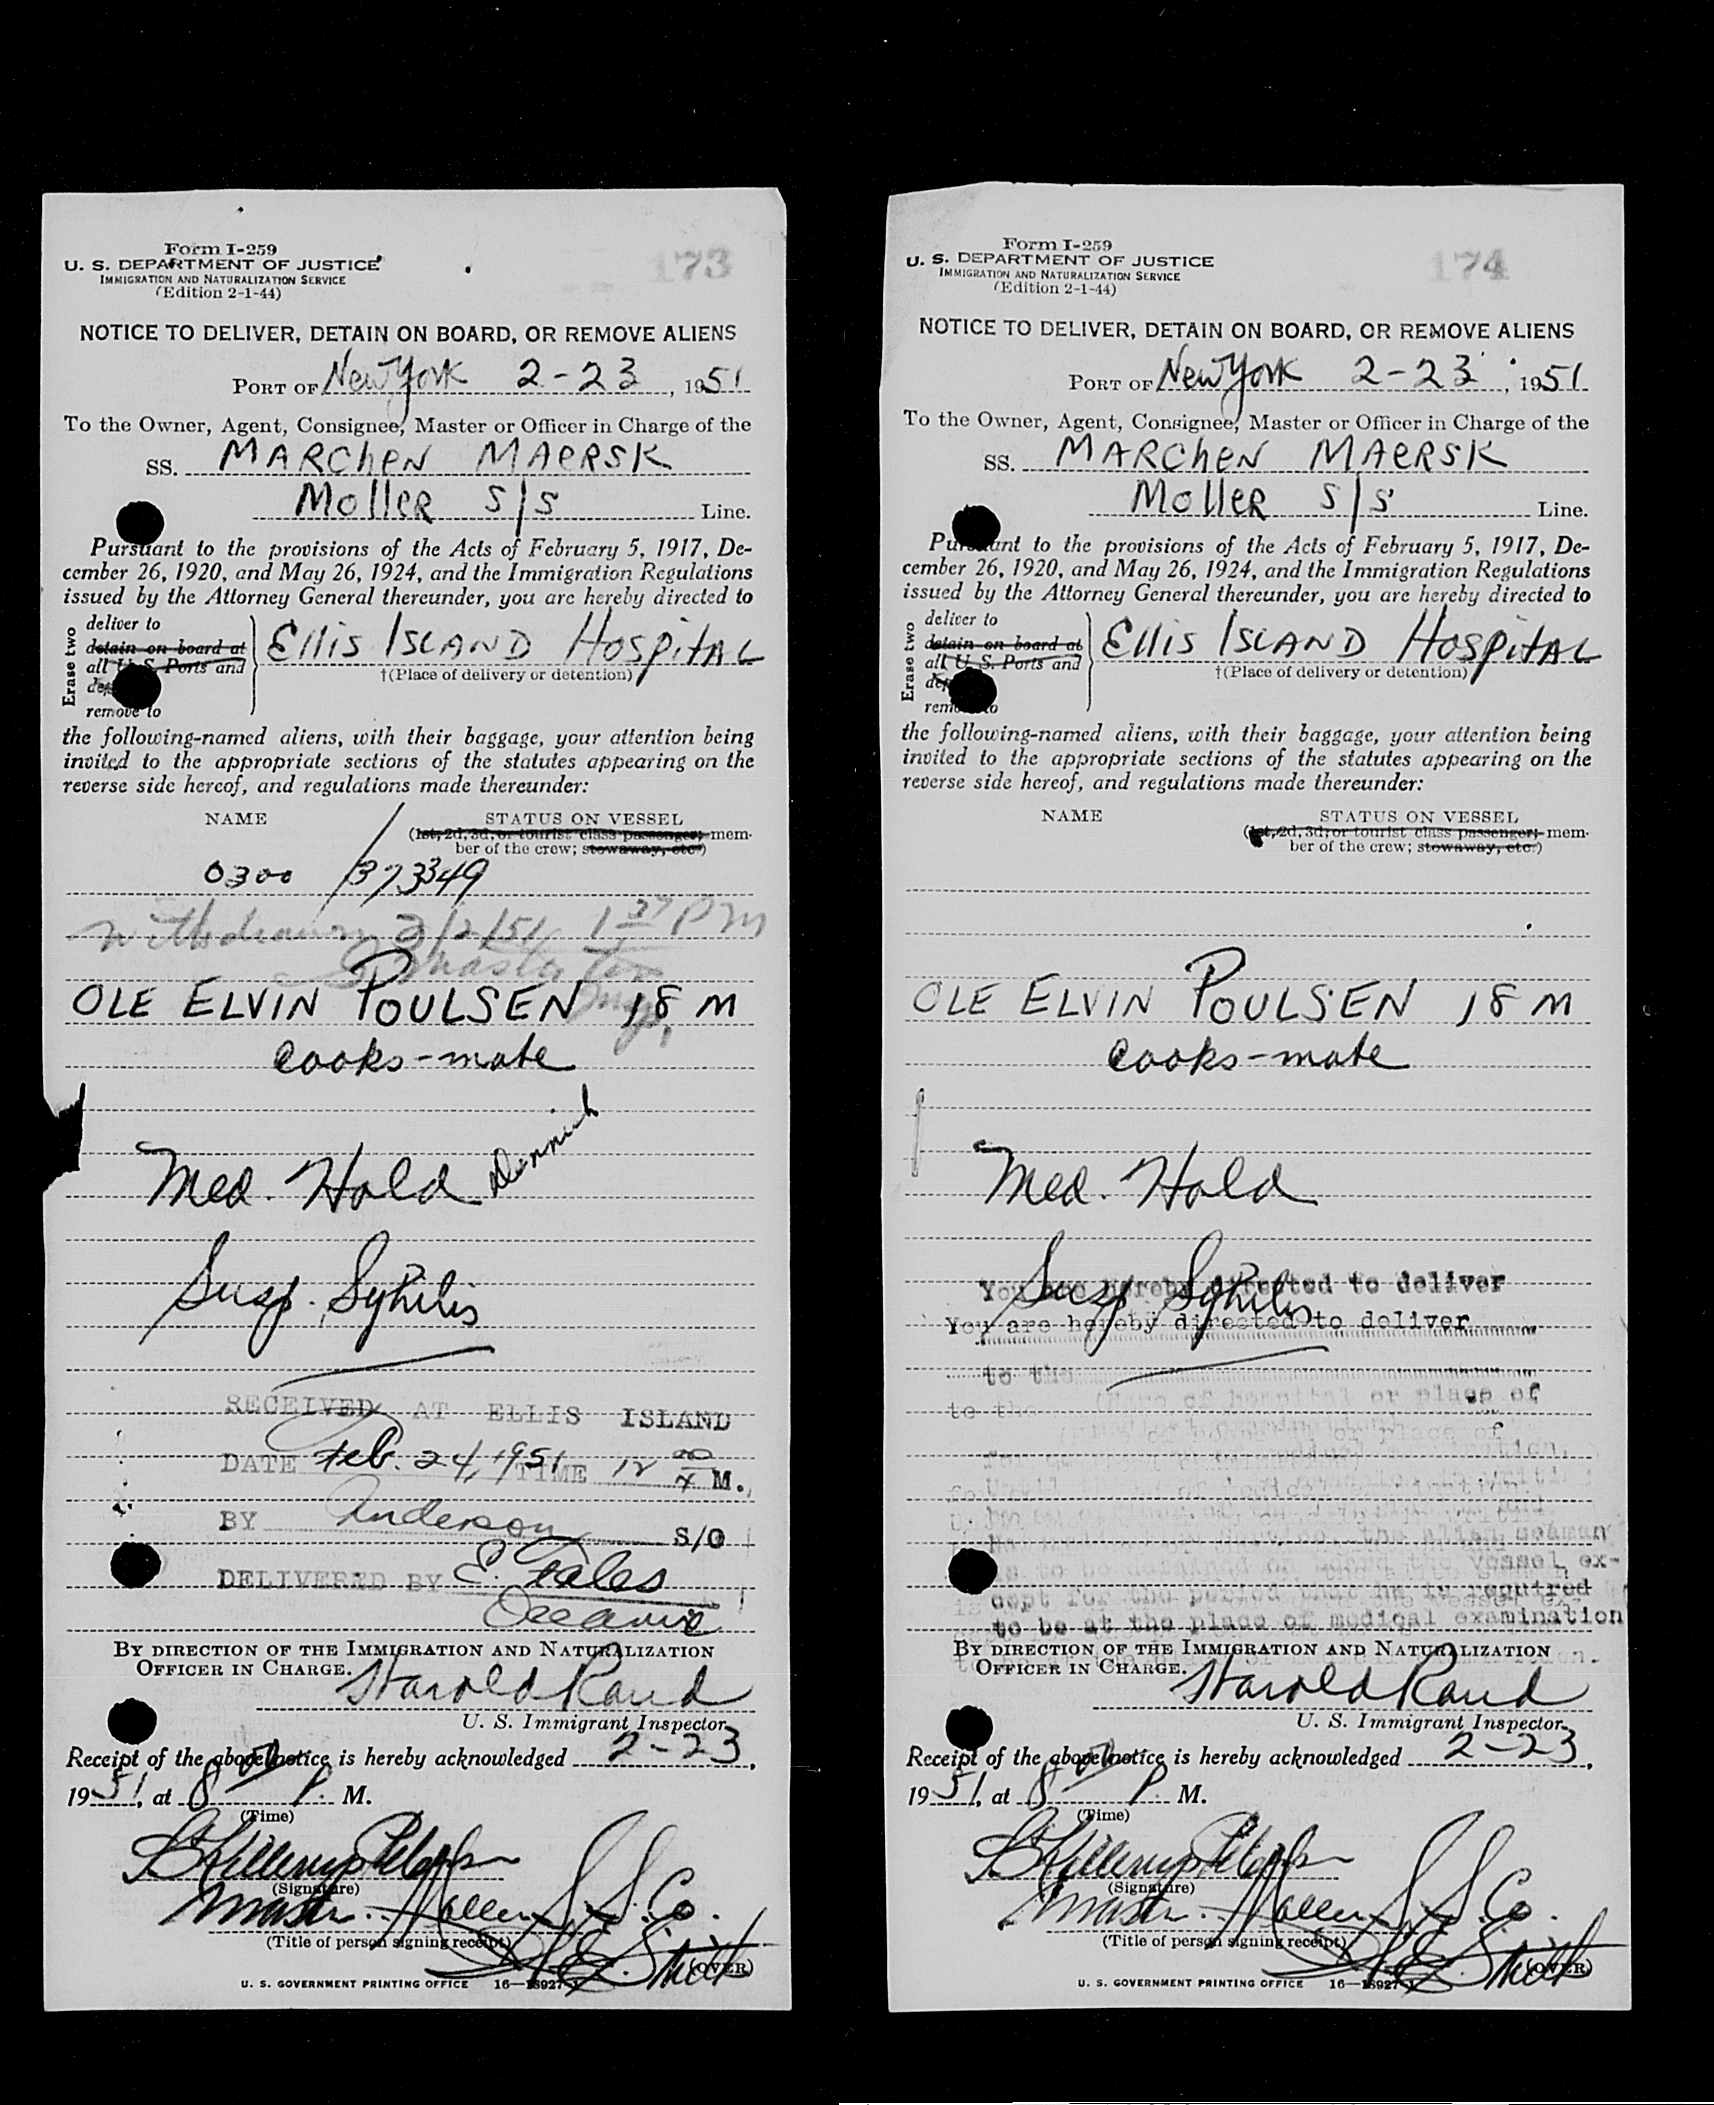 Form I-259
U. S. DEPARTMENT OF JUSTICE
IMMIGRATION AND NATURALIZATION SERVICE
(Edition 2-1-44)
173
NOTICE TO DELIVER, DETAIN ON BOARD, OR REMOVE ALIENS
PORT OF New York 2-23, 1951
To the Owner, Agent, Consignee, Master or Officer in Charge of the
SS. MARCHEN MAERSK
MOLLER S/S Line.
Pursuant to the provisions of the Acts of February 5, 1917, De-
cember 26, 1920, and May 26, 1924, and the Immigration Regulations
issued by the Attorney General thereunder, you are hereby directed to
Erase two
deliver to
detain on board at
all U. S. Ports and
remove to
ELLIS ISLAND HOSPITAL
†(Place of delivery or detention)
the following-named aliens, with their baggage, your attention being
invited to the appropriate sections of the statutes appearing on the
reverse side hereof, and regulations made thereunder:
NAME STATUS ON VESSEL
(1st, 2d, 3d, or tourist class passenger; mem-
ber of the crew; stowaway, etc.)
0300 / 373349
Withdrawn 3/2/51 1 37 PM
OLE ELVIN POULSEN 18 M
Cooks-mate
Med. Hold
Susp. Syhilis
RECEIVED AT ELLIS ISLAND
DATE Feb. 24, 1951 TIME 12 00 M.
BY Anderson S/O
DELIVERED BY E. Fales
Oceanic
BY DIRECTION OF THE IMMIGRATION AND NATURALIZATION
OFFICER IN CHARGE.
Harold Rand
U. S. Immigrant Inspector.
Receipt of the above notice is hereby acknowledged 2-23,
1951, at 8 P. M.
(Time)
(Signature)
Master. Moller S. S. Co.
(Title of person signing receipt)
(OVER)
U. S. GOVERNMENT PRINTING OFFICE 16—18927-1
Form I-259
U. S. DEPARTMENT OF JUSTICE
IMMIGRATION AND NATURALIZATION SERVICE
(Edition 2-1-44)
174
NOTICE TO DELIVER, DETAIN ON BOARD, OR REMOVE ALIENS
PORT OF New York 2-23, 1951
To the Owner, Agent, Consignee, Master or Officer in Charge of the
SS. MARCHEN MAERSK
MOLLER S/S Line.
Pursuant to the provisions of the Acts of February 5, 1917, De-
cember 26, 1920, and May 26, 1924, and the Immigration Regulations
issued by the Attorney General thereunder, you are hereby directed to
Erase two
deliver to
detain on board at
all U. S. Ports and
remove to
ELLIS ISLAND HOSPITAL
†(Place of delivery or detention)
the following-named aliens, with their baggage, your attention being
invited to the appropriate sections of the statutes appearing on the
reverse side hereof, and regulations made thereunder:
NAME STATUS ON VESSEL
(1st, 2d, 3d, or tourist class passenger; mem-
ber of the crew; stowaway, etc.)
OLE ELVIN POULSEN 18 M
Cooks-mate
Med. Hold
Susp. Syhilis
You are hereby directed to deliver
You are hereby directed to deliver
to the
to the (Name of hospital or place of
the alien seaman
is to be detained on board the vessel ex-
cept for the period that he is required
to be at the place of medical examination
BY DIRECTION OF THE IMMIGRATION AND NATURALIZATION
OFFICER IN CHARGE.
Harold Rand
U. S. Immigrant Inspector.
Receipt of the above notice is hereby acknowledged 2-23,
1951, at 8 P. M.
(Time)
(Signature)
Master. Moller S. S. Co.
(Title of person signing receipt)
(OVER)
U. S. GOVERNMENT PRINTING OFFICE 16—18927-1